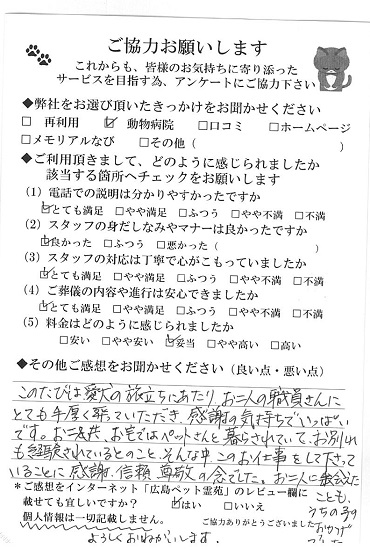 ご協力お願いします
これからも、皆様のお気持ちに寄り添った
サービスを目指す為、アンケートにご協力下さい
◆弊社をお選び頂いたきっかけをお聞かせください
□ 再利用 ☑ 動物病院 □口コミ □ホームページ
□メモリアルなび □その他（ ）
◆ご利用頂きまして、どのように感じられましたか
該当する箇所へチェックをお願いします
（1）電話での説明は分かりやすかったですか
☑とても満足 □やや満足 □ふつう □やや不満 □不満
（2）スタッフの身だしなみやマナーは良かったですか
☑良かった □ふつう □悪かった（ ）
（3）スタッフの対応は丁寧で心がこもっていましたか
☑とても満足 □やや満足 □ふつう □やや不満 □不満
（4）ご葬儀の内容や進行は安心できましたか
☑とても満足 □やや満足 □ふつう □やや不満 □不満
（5）料金はどのように感じられましたか
□安い □やや安い ☑妥当 □やや高い □高い
◆その他ご感想をお聞かせください（良い点・悪い点）
このたびは愛犬の旅立ちにあたり、お二人の職員さんに
とても手厚く寄っていただき 感謝の気持ちでいっぱい
です。お二人共、お宅ではペットさんと暮らされていて、お別れ
も経験されているとのこと、そんな中 このお仕事をして下さって
いることに 感謝、信頼、尊敬の念でした。お二人に
＊ご感想をインターネット「広島ペット霊苑」のレビュー欄に
載せても宜しいですか？ ☑はい □いいえ
個人情報は一切記載しません。
ご協力ありがとうございました
ことも、
うちの子の
おかげ
よろしくおねがいします。